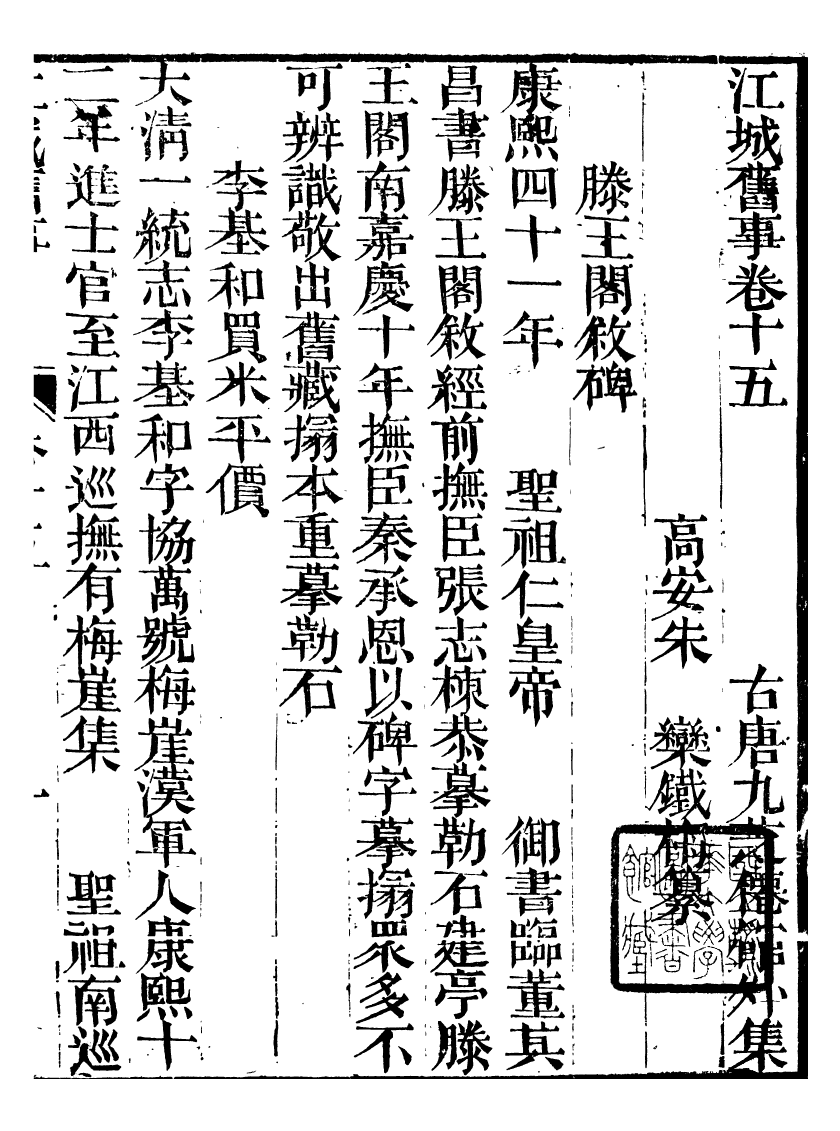 江城舊事卷十五　古唐九芝僊館外集
高安朱　欒鐵梅纂
滕王閣敘碑
康熙四十一年　聖祖仁皇帝　御書臨董其
昌書滕王閣敘經前撫臣張志棟恭摹勒石建亭滕
王閣南嘉慶十年撫臣秦承恩以碑字摹搨衆多不
可辨識敬出舊藏搨本重摹勒石
李基和買米平價
大清一統志李基和字協萬號梅崖漢軍人康熙十
二年進士官至江西巡撫有梅崖集　聖祖南巡